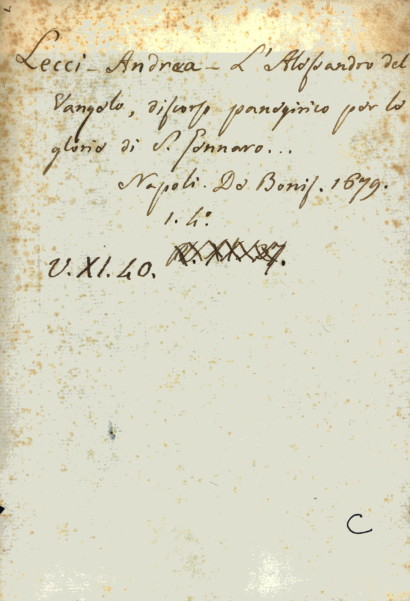 Lecci - Andrea - L'Alessandro del
Vangelo, discorso panegirico per le
glorie di S. Gennaro...
Napoli. De Bonis. 1679.
1. 4°.
V. XI. 40.
C